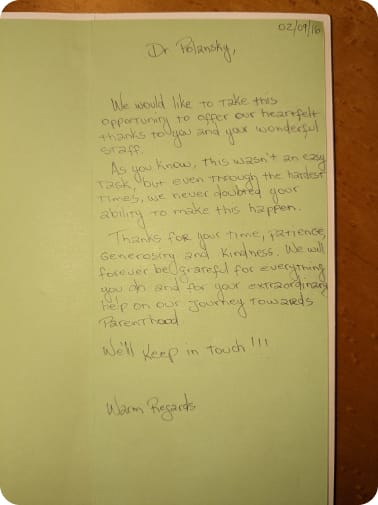 02/09/16
Dr. Polansky,
We would like to take this
opportunity to offer our heartfelt
thanks to you and your wonderful
staff.
As you know, this wasn't an easy
task, but even through the hardest
times, we never doubted your
ability to make this happen.
Thanks for your time, patience,
Generosity and Kindness. We will
forever be grateful for everything
you do and for your extraordinary
help on our journey towards
Parenthood.
We'll keep in touch!!!
Warm Regards